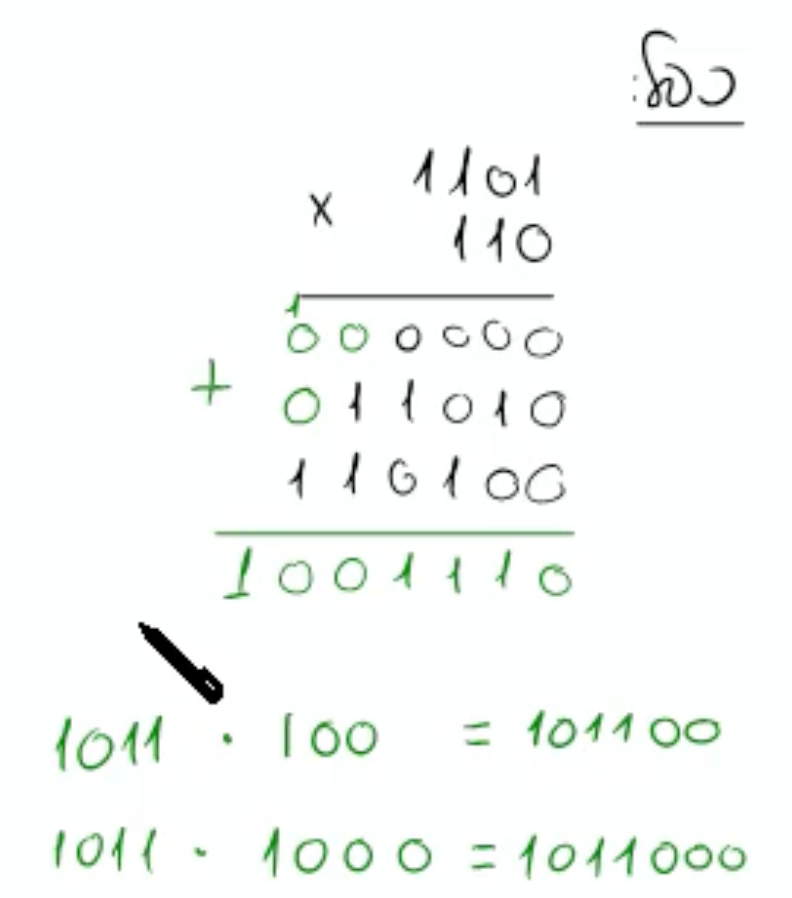 כפל:
1101
x 110
1
000000
+ 011010
110100
1001110
1011 · 100 = 101100
1011 · 1000 = 1011000